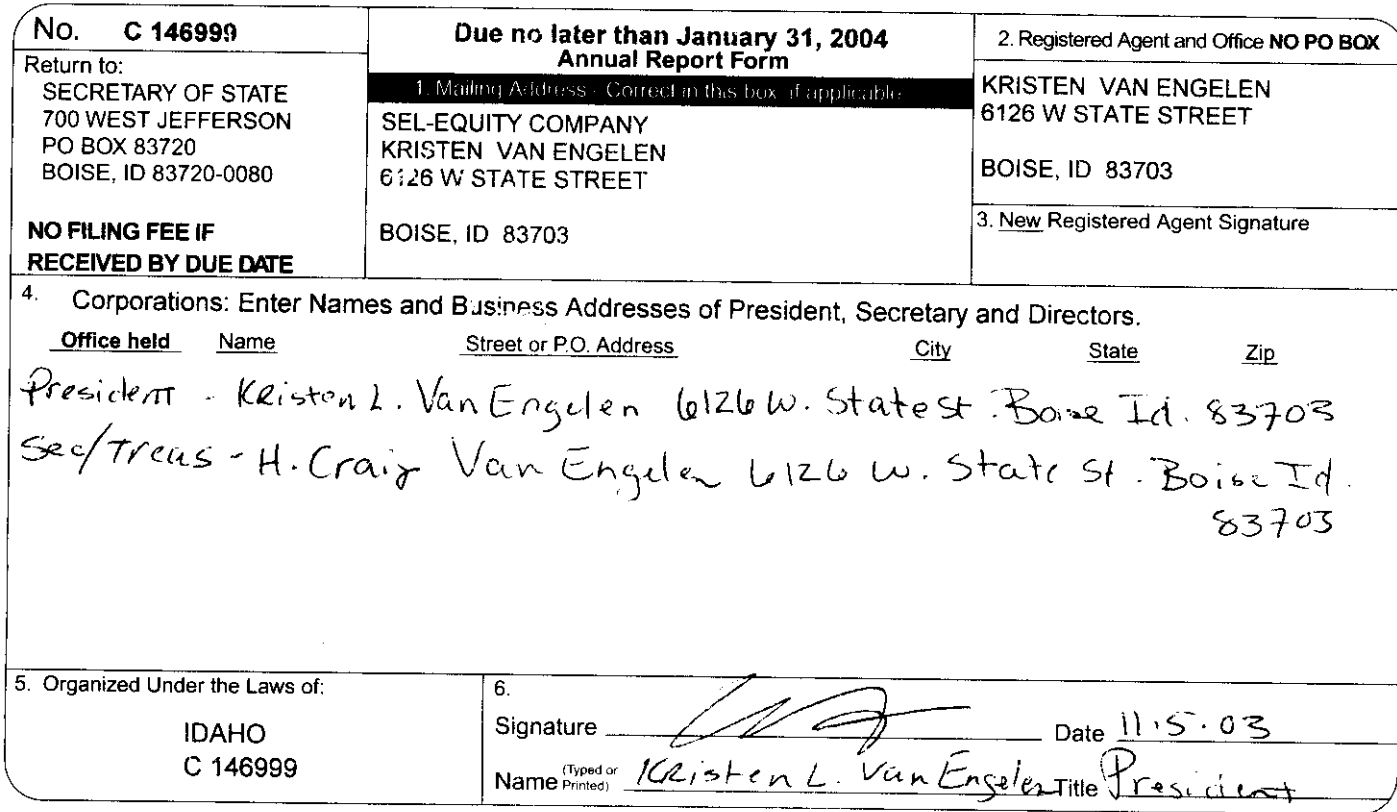 No. C 146999
Return to:
SECRETARY OF STATE
700 WEST JEFFERSON
PO BOX 83720
BOISE, ID 83720-0080
NO FILING FEE IF
RECEIVED BY DUE DATE
Due no later than January 31, 2004
Annual Report Form
1. Mailing Address - Correct in this box if applicable
SEL-EQUITY COMPANY
KRISTEN VAN ENGELEN
6126 W STATE STREET
BOISE, ID 83703
2. Registered Agent and Office NO PO BOX
KRISTEN VAN ENGELEN
6126 W STATE STREET
BOISE, ID 83703
3. New Registered Agent Signature
4. Corporations: Enter Names and Business Addresses of President, Secretary and Directors.
Office held Name Street or P.O. Address City State Zip
President - Kristen L. Van Engelen 6126 W. State St. Boise Id. 83703
Sec/Treas - H. Craig Van Engelen 6126 W. State St. Boise Id.
83703
5. Organized Under the Laws of:
IDAHO
C 146999
6.
Signature Date 11.5.03
Name (Typed or Printed) Kristen L. Van Engelen Title President